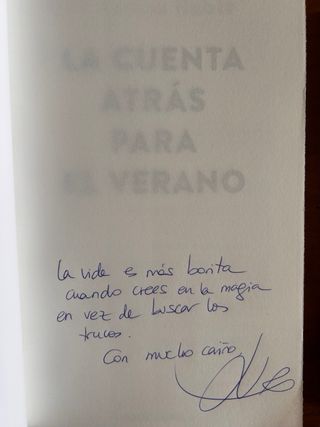 LA CUENTA
ATRÁS
PARA
EL VERANO
La vida es más bonita
cuando crees en la magia
en vez de buscar los
trucos.
Con mucho cariño,